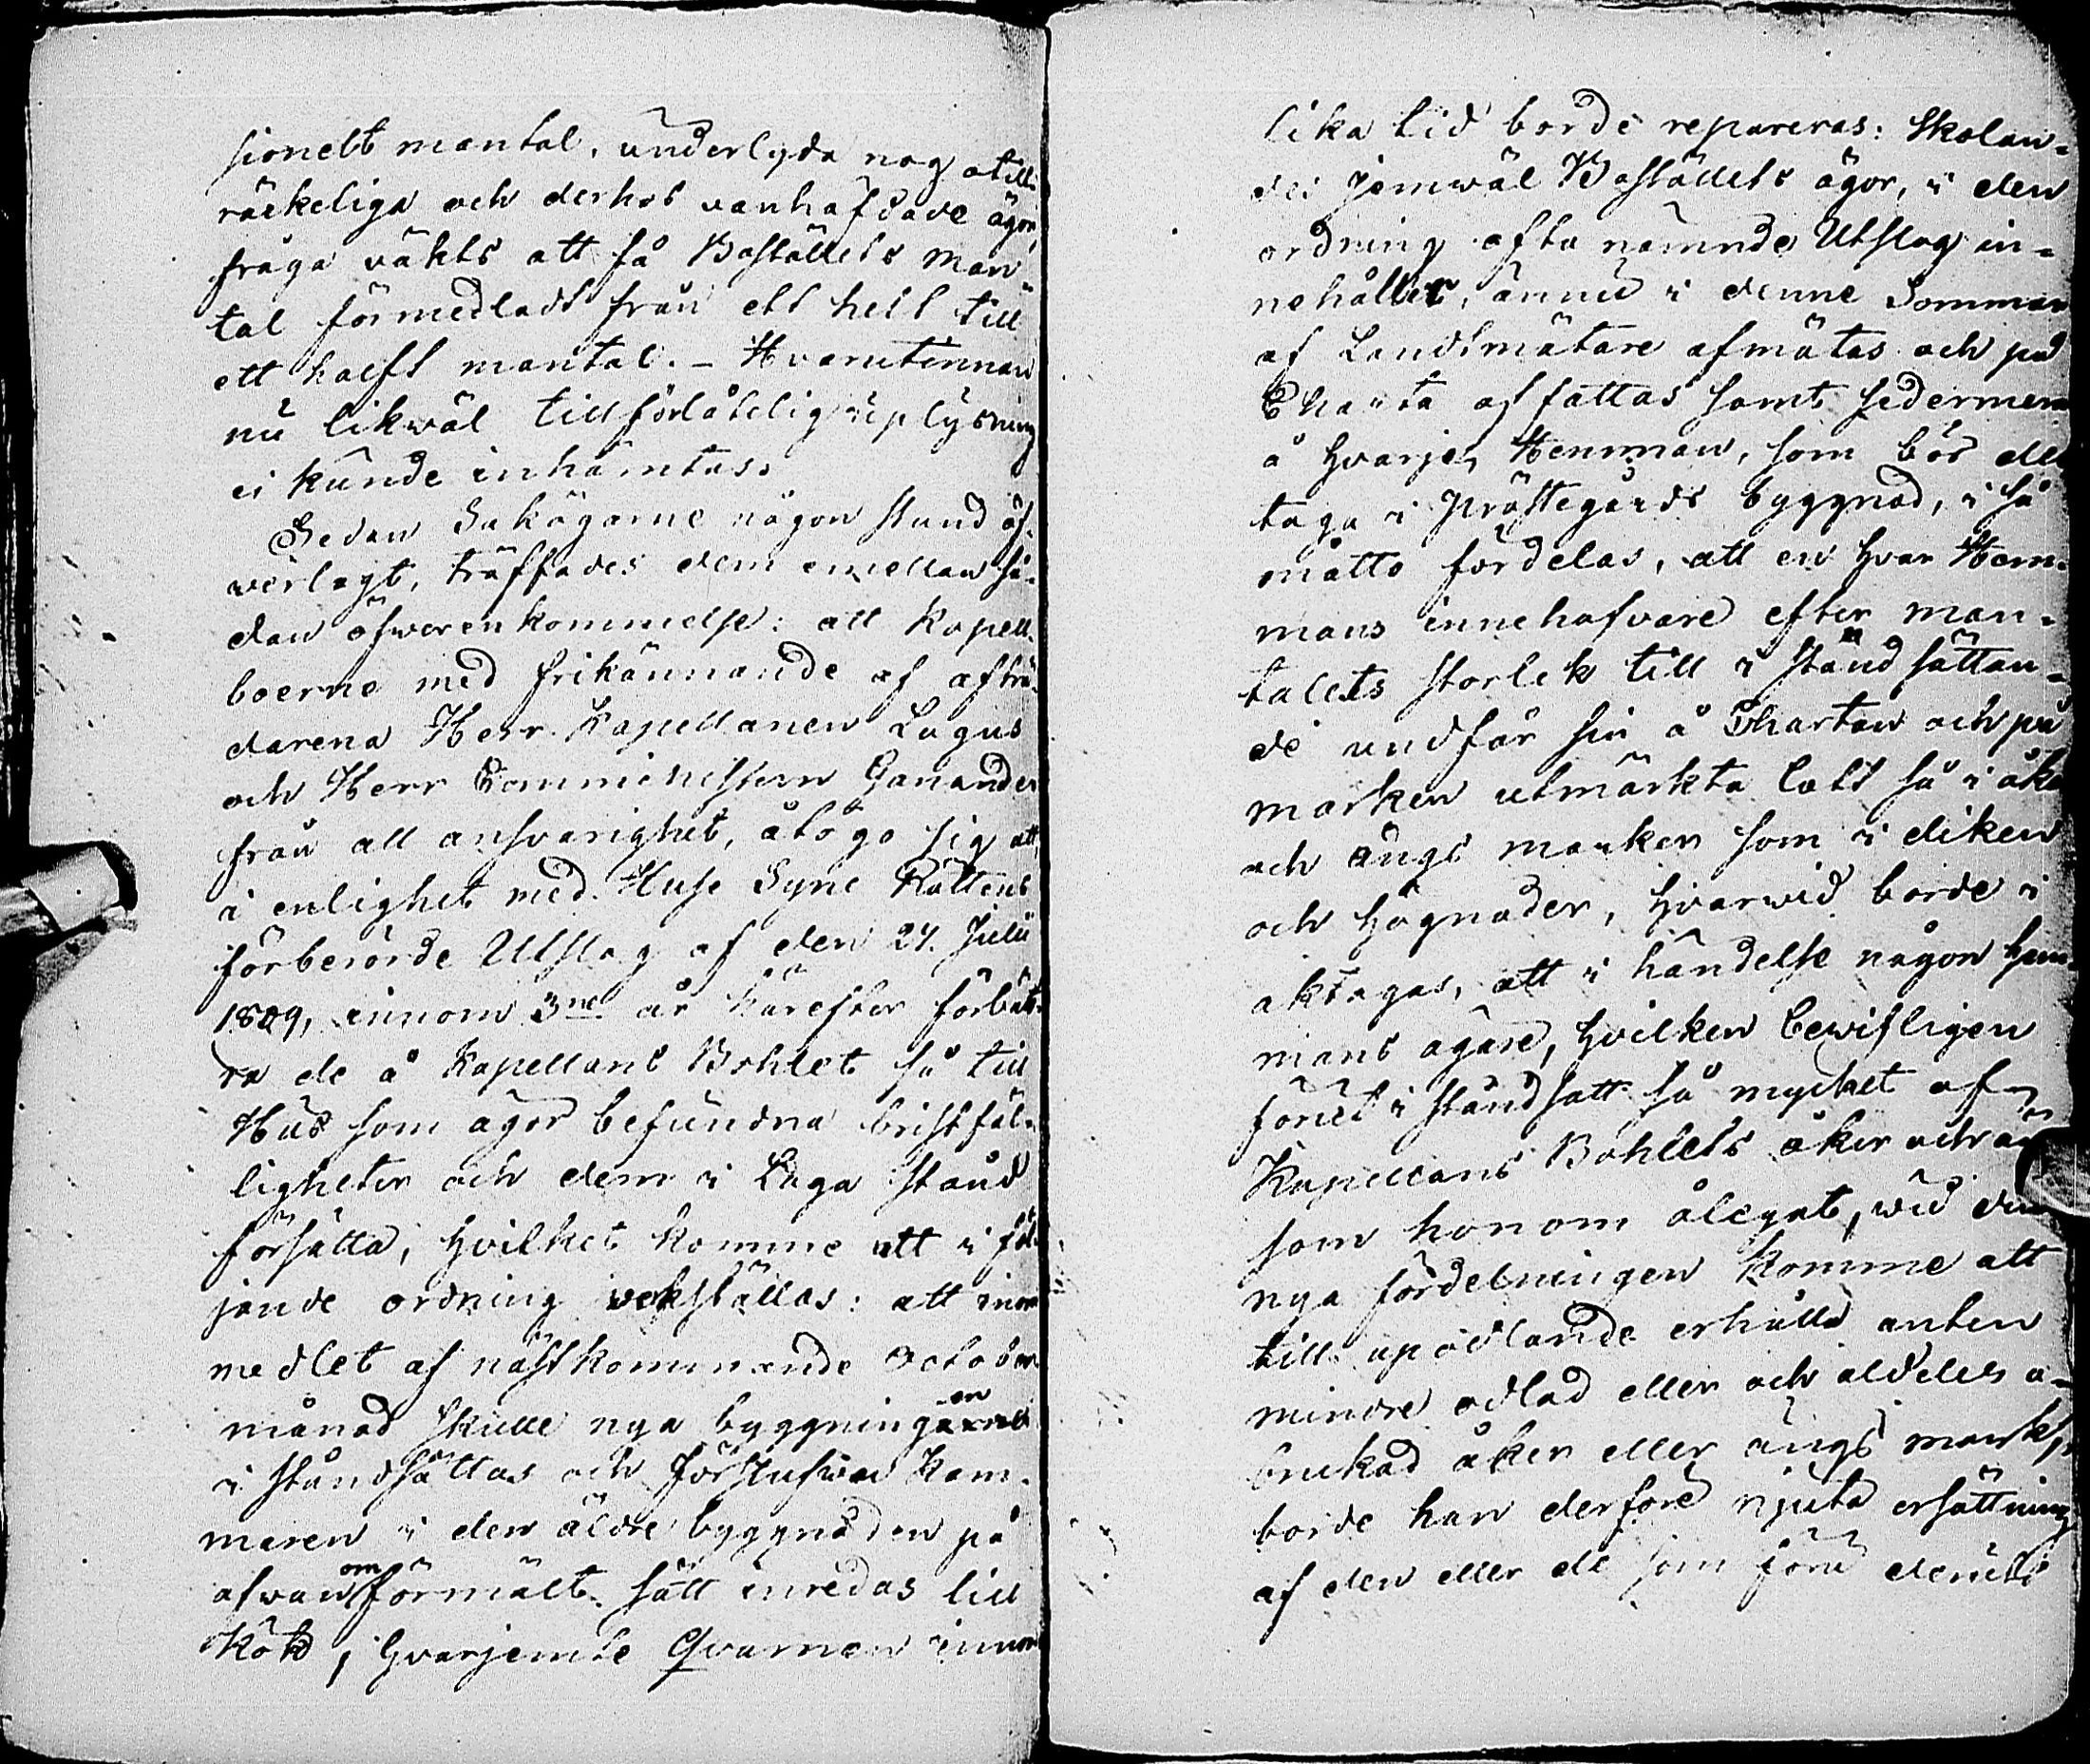 sionelt mantal, underlyda nog otill-
räckeliga och derhos vanhäfdade ägor,
fråga väkts att få Boställets man-
tal förmedladt från ett helt till
ett halft mantal. – Hvarutinnan
nu likwäl tillförlåtelig uplysning
ei kunde inhämtas.
Sedan Sakägarne någon stund öf-
verlagt, träffades dem emellan så-
dan öfwerenkommelse: att Kapell-
boerne med frikännande af afträ-
darena Herr Kapellanen Lagus
och Herr Comministern Ganander
från all ansvarighet, åtogo sig att
i enlighet med Huse Syne Rättens
förberörde Utslag af den 24. Julii
1809, innom 3ne år härefter förbätt-
ra de å Kapellans Bohlet så till
Hus som ägor befundna bristfäl-
ligheter och dem i Laga stånd
försätta, hvilket komme att i föl-
jande ordning verkställas: att inom
medlet af nästkommande October
månad skulle nya byggningen
i ståndsättas och Förstufwu Kam-
maren i den äldre byggnaden på
ofwanomförmält sätt inredas till
Kök, hvarjemte Qvarnen innom
lika tid borde repareras: Skolan-
des jemwäl Boställets ägor, i den
ordning ofta nämnde Utslag in-
nehåller, ännu i denne Sommar
af Landtmätare afmätas och på
Charta affattas samt sedermera
å hvarje Hemman, som bör del-
taga i Prästegårds byggnad, i så
måtto fördelas, att en hvar Hem-
mans innehafvare efter man-
talets storlek till i ståndsättan-
de undfår sin å Chartan och på
marken utmärkta lott så i åker
och ängs marken som i diken
och hägnader, hvarwid borde i
akttagas, att i händelse någon hem-
mans ägare, hvilken bewisligen
förut i ståndsatt så mycket af
Kapellans Bohlets åker och äng
som honom ålegat, wid den
nya fördelningen komme att
till upodlande erhålla anten
mindre odlad eller och aldeles o-
brukad åker eller ängs mark,
borde han derföre njuta ersättning
af den eller de som förr deruti